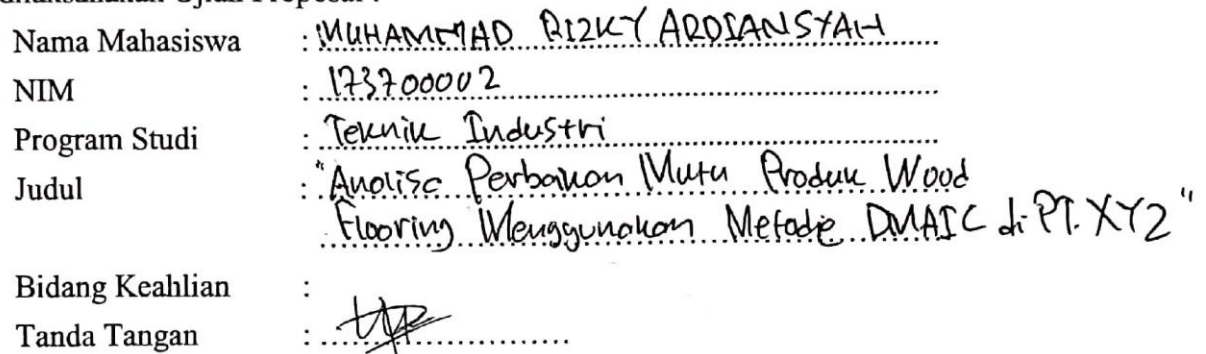 Ujian Proposal :
Nama Mahasiswa : MUHAMMAD RIZKY ARDIANSYAH
NIM : 173700002
Program Studi : Teknik Industri
Judul : "Analisa Perbaikan Mutu Produk Wood
Flooring Menggunakan Metode DMAIC di PT. XYZ"
Bidang Keahlian :
Tanda Tangan :